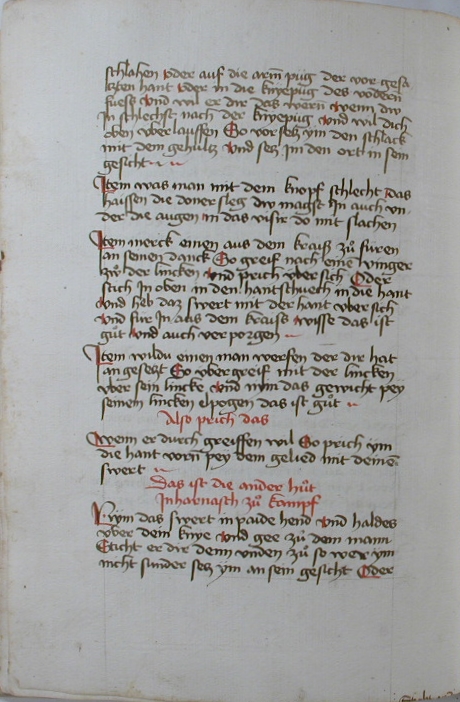 schlahen oder auf die arm pug der vor gesa
tzten hant oder in die kniepug des vodern
fuess Und wil er dir das wern wenn dw
In schlechst nach der kniepug Und wil dich
oben vber lauffen So vorsetz ym den schlack
mit dem gehultz Und setz Im den ort in sein
gesicht
Item was man mit dem knopf schlecht Das
haissen die doner sleg dw magst In auch vn
der die augen in das visir do mit slachen
Item merck einen aus dem kraiß zů furen
an seinen danck So greif nach eine vinger
zů der lincken Und prich vber sich Oder
stich In oben in den hantschuech in die hant
Und heb daz swert mit der hant vber sich
Und fur In aus dem kraiss wisse das ist
gůt Und auch verporgen
Item wildu einen man werfen der dir hat
angesetzt So vbergreif mit der lincken
vber sein lincke Und nym das gewicht pey
seinem lincken elpogen das ist gůt
Also prich das
Wenn er durch greiffen wil So prich ym
die hant vorn pey dem gelied mit deine
swert
Das ist die ander hůt
Inharnasch zů kampf
Nym das swert in paide hend Und haldes
vber dein knye Und gee zů dem mann
Sticht er dir denn vnden zů so wer ym
nicht sunder setz ym an sein gesicht Oder